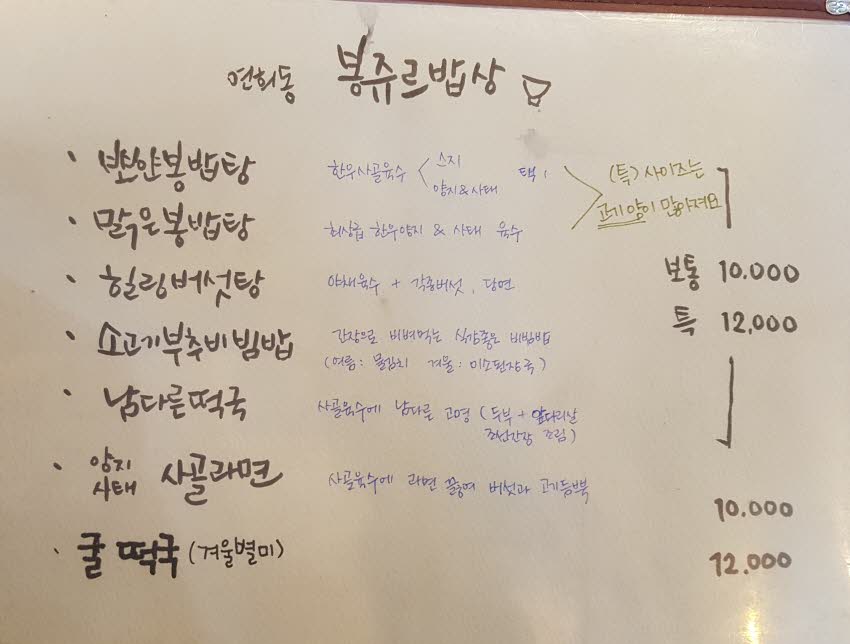 연희동 봉쥬르밥상
· 뽀얀봉밥탕 한우사골육수 < 스지 양지&사태 택1
(특) 사이즈는
고기양이 많아져요
· 맑은봉밥탕 최상급 한우양지 & 사태 육수
· 힐링버섯탕 야채육수 + 각종버섯, 당면
보통 10.000
특 12,000
· 소고기부추비빔밥 간장으로 비벼먹는 식감좋은 비빔밥
(여름: 물김치 겨울: 미소된장국)
· 남다른떡국 사골육수에 남다른 고명 (두부 + 앞다리살
조선간장 조림)
· 양지 사태 사골라면 사골육수에 라면 끓여 버섯과 고기듬뿍
10.000
· 굴 떡국 (겨울별미) 12.000